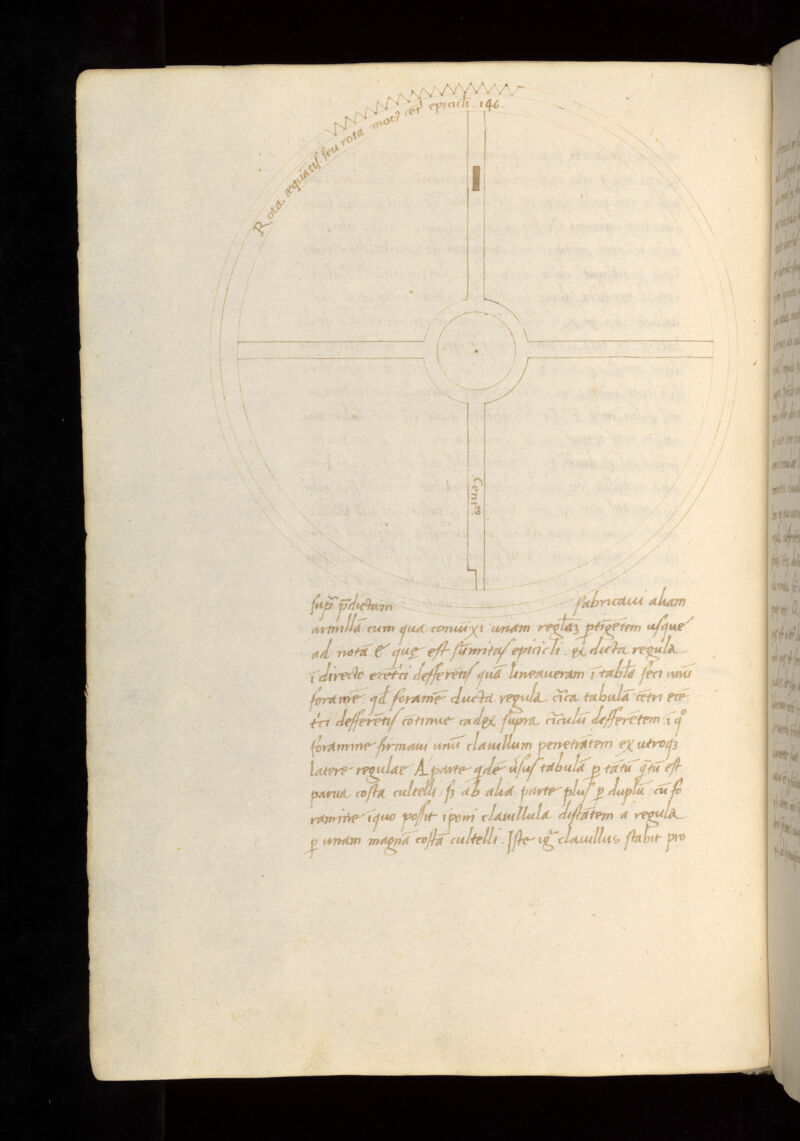 Rota æquatis seu rota mot9 cēt epicicli . 146.
Centr̄
supͣ p̄dictam fabricaui aliam
armillā cum qua coniūxi unam reglāʒ ꝑtīgētem usque
ad notā E que est sūmitas epicicli . Ex ducta regula
ī directo ecēt'ci defferētis quā lineaueram ī tabla feci unū
foramē qd foramē ducta regula circa tabulā cētri ecē
t'ci defferētis cōtinue cadex supra circulū defferētem . ī qº
foramine firmaui unū clauillum penetrātem ex utroqʒ
latere regulae A parte qdē usus tabulā ꝑ tātū qtū est
parua costa cultelli sʒ ab alia parte plus ꝑ duplū cū fo
ramine ī quo possit īponi clauillula distātem a regula
ꝑ unam magnā costā cultelli . Iste igͬ clauillus stabit pro